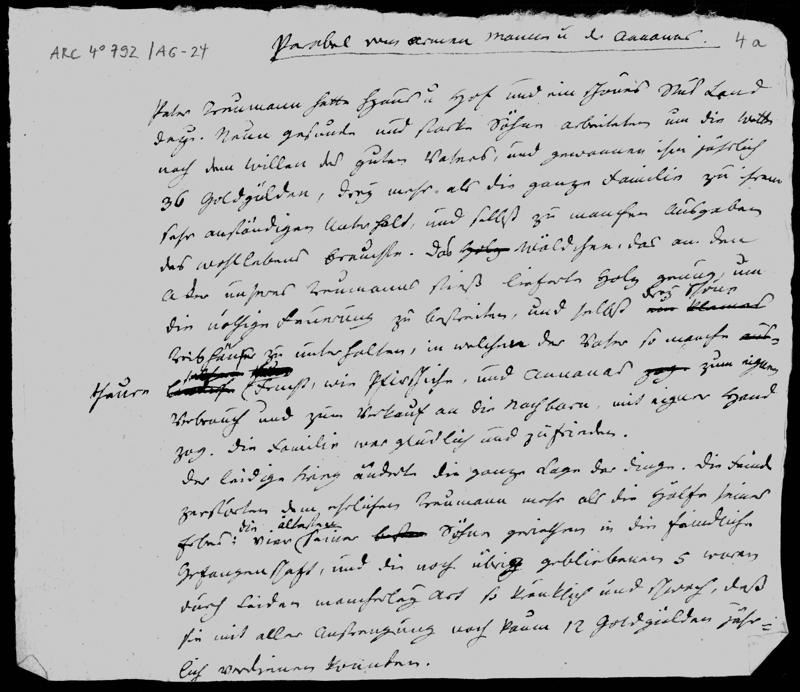 ARC 4° 792 / A6-24
Parabel vom armen Manne u. der Ananas.
4a
Peter Treumann hatte Haus u Hof und ein schönes Stück Land
dazu. Neun gesunde und starke Söhne arbeiteten um die Wette
nach dem Willen des guten Vaters, und gewannen ihm jährlich
36 Goldgülden, drey mehr, als die ganze Familie zu ihrem
sehr anständigen Unterhalt, und selbst zu manchen Ausgaben
des Wohllebens brauchte. Das Holz Wäldchen, das an den
Acker unseres Treumanns stieß lieferte Holz genug, um
die nöthige Feuerung zu bestreiten, und selbst ein kleines
drey schöne
Treibhäuser zu unterhalten, in welchen der Vater so manche aus-
theure Frucht, wie Pfirsiche, und Ananas zog zum eignen
Verbrauch und zum Verkauf an die Nachbarn, mit eigner Hand
zog. Die Familie war glücklich und zufrieden.
Der leidige Krieg änderte die ganze Lage der Dinge. Die Feinde
zerstörten dem ehrlichen Treumann mehr als die Hälfte seines
die ältesten
Erbes: vier seiner besten Söhne geriethen in die feindliche
Gefangenschaft, und die noch übrig gebliebenen 5 waren
durch Leiden mancherley Art so kränklich und schwach, daß
sie mit aller Anstrengung noch kaum 12 Goldgülden jähr=
lich verdienen konnten.